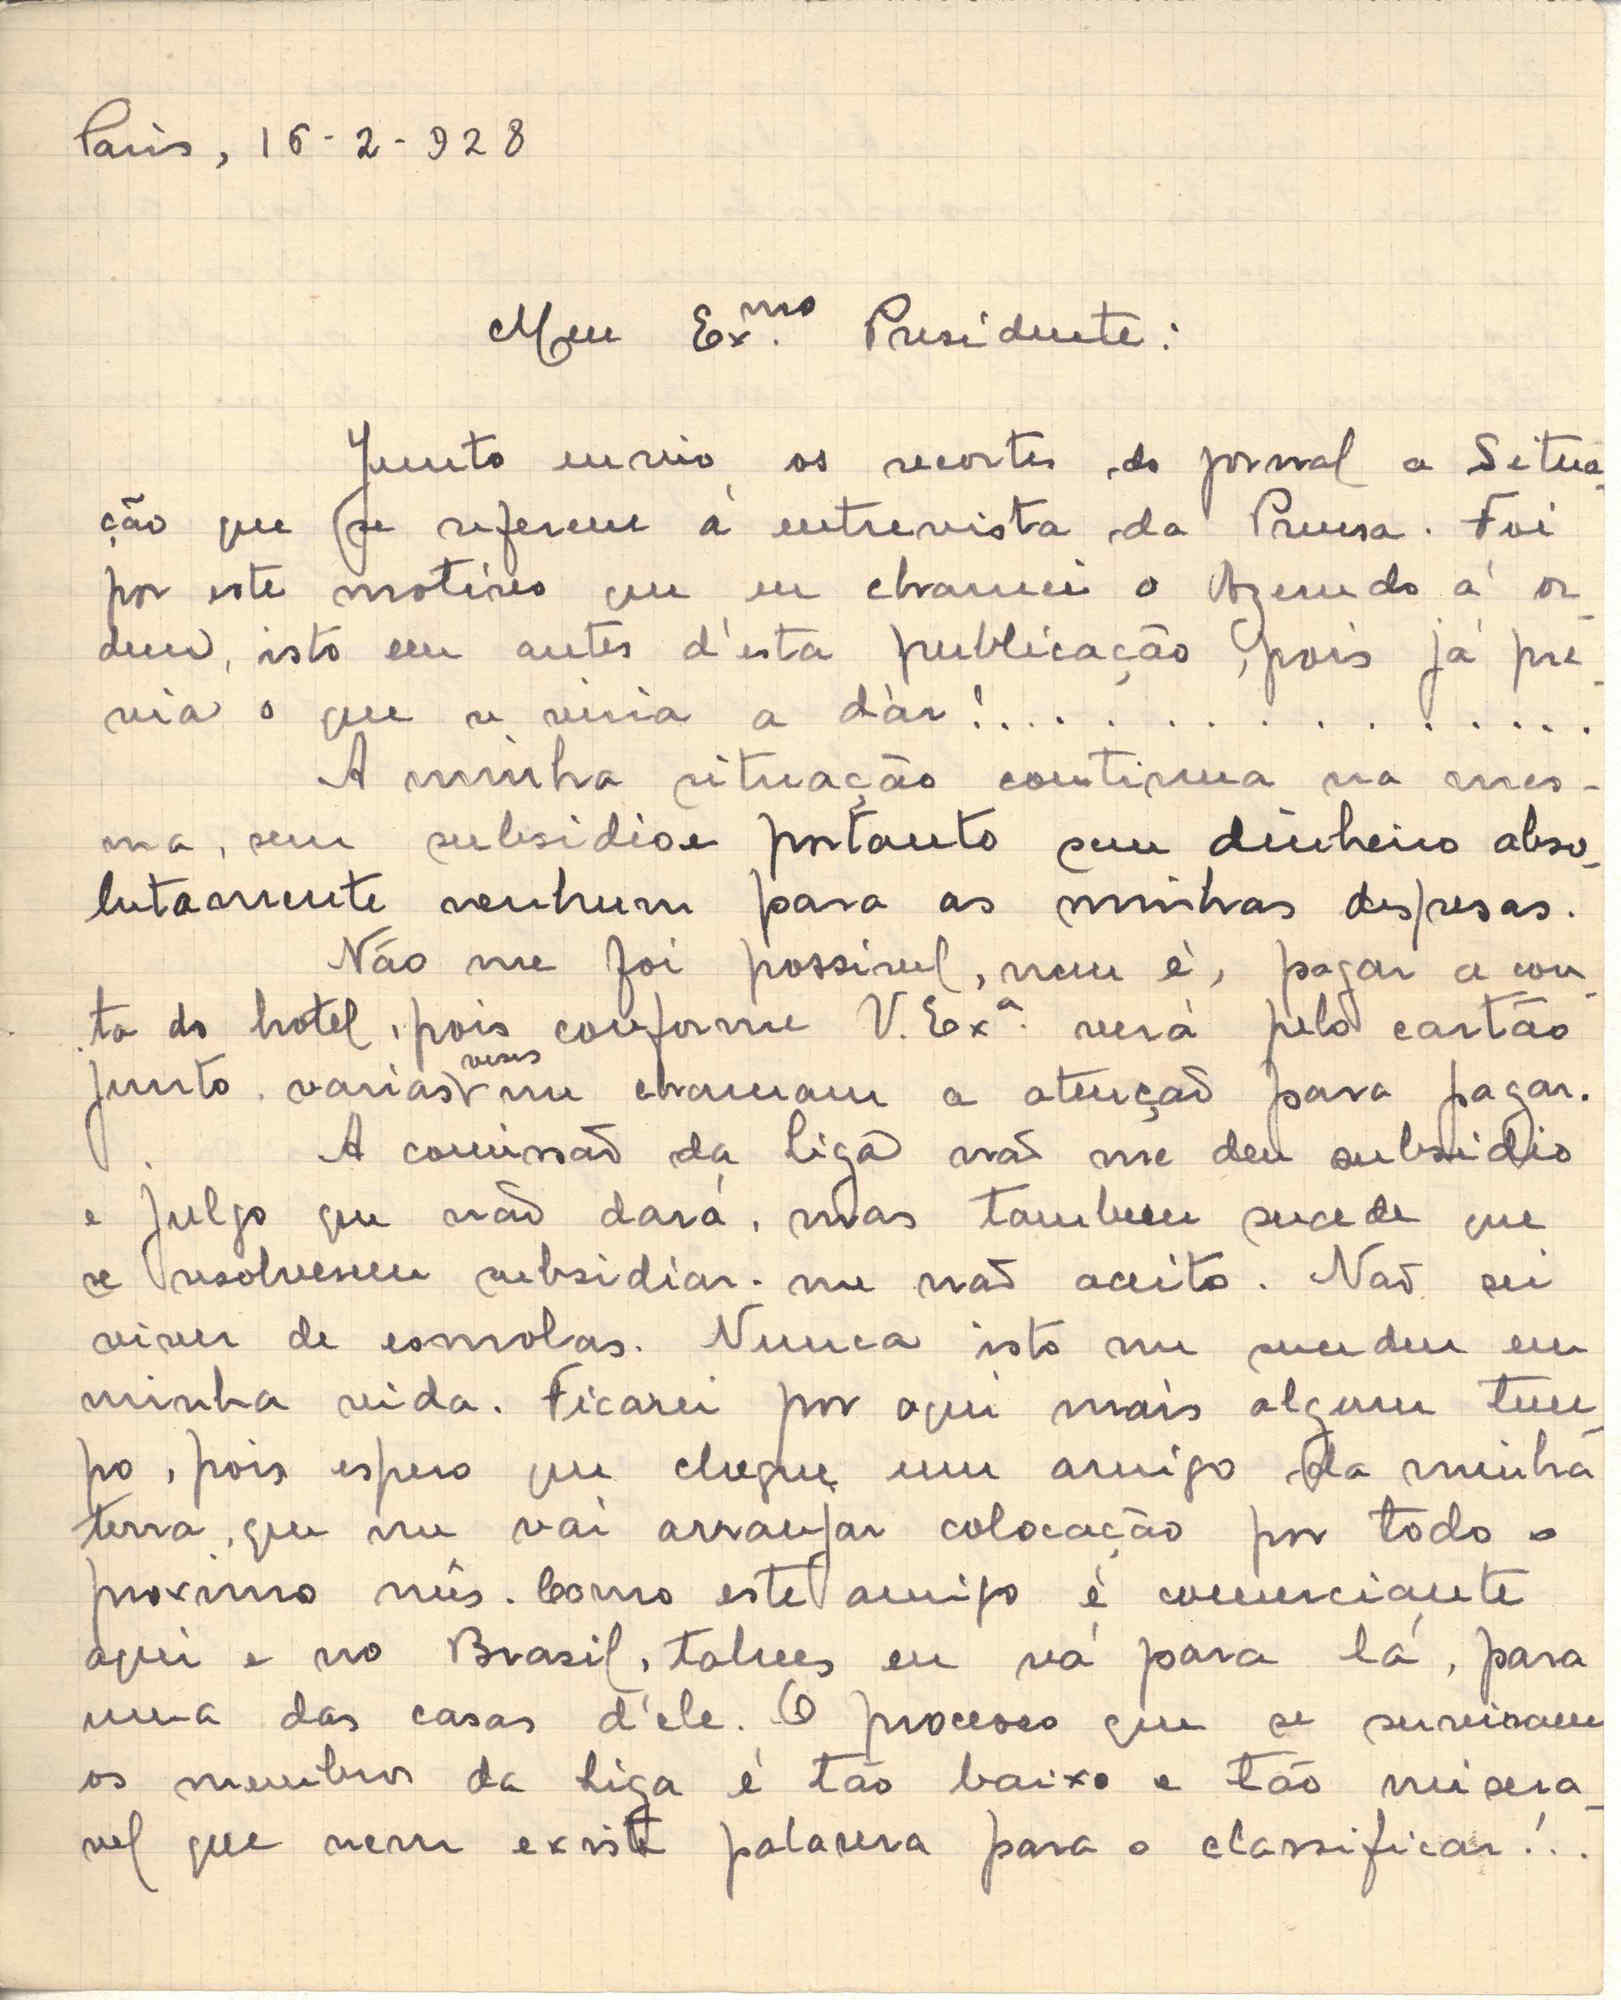 Paris, 16-2-928
Meu Ex.mo Presidente:
Junto envio os recortes do jornal a Situa-
ção que se referem á entrevista da Prensa. Foi
por este motivo que eu chamei o Azeredo á or-
dem, isto em antes d'esta publicação, pois já pre-
via o que viria a dár!..................
A minha situação continua na mes-
ma, sem subsidio e portanto sem dinheiro abso-
lutamente nenhum para as minhas despesas.
Não me foi possivel, nem é, pagar a con-
ta do hotel, pois conforme V. Ex.a verá pelo cartão
junto, varias veses me chamam a atenção para pagar.
A comissão da Liga não me deu subsidio
e julgo que não dará, mas tambem sucede que
se resolvessem subsidiar-me não aceito. Não sei
viver de esmolas. Nunca isto me sucedeu em
minha vida. Ficarei por aqui mais algum tem-
po, pois espero que chegue um amigo da minha
terra, que me vai arranjar colocação por todo o
proximo mês. Como este amigo é comerciante
aqui e no Brasil, talvez eu vá para lá, para
uma das casas d'éle. O processo que se serviram
os membros da Liga é tão baixo e tão misera-
vel que nem existe palavra para o classificar!..